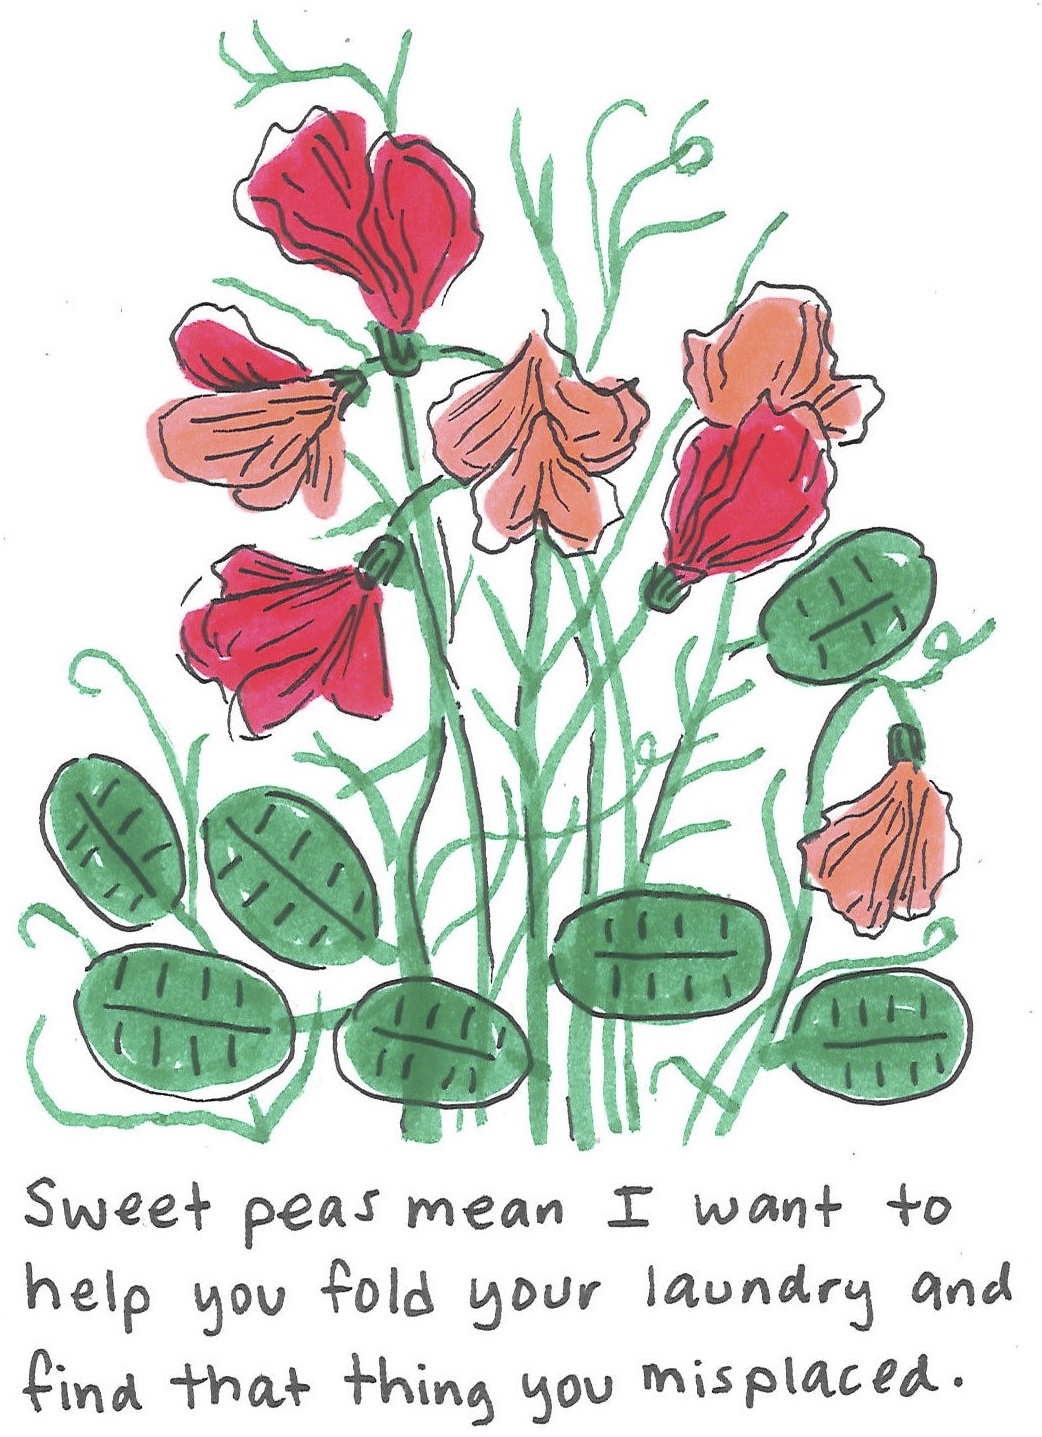 Sweet peas mean I want to
help you fold your laundry and
find that thing you misplaced.